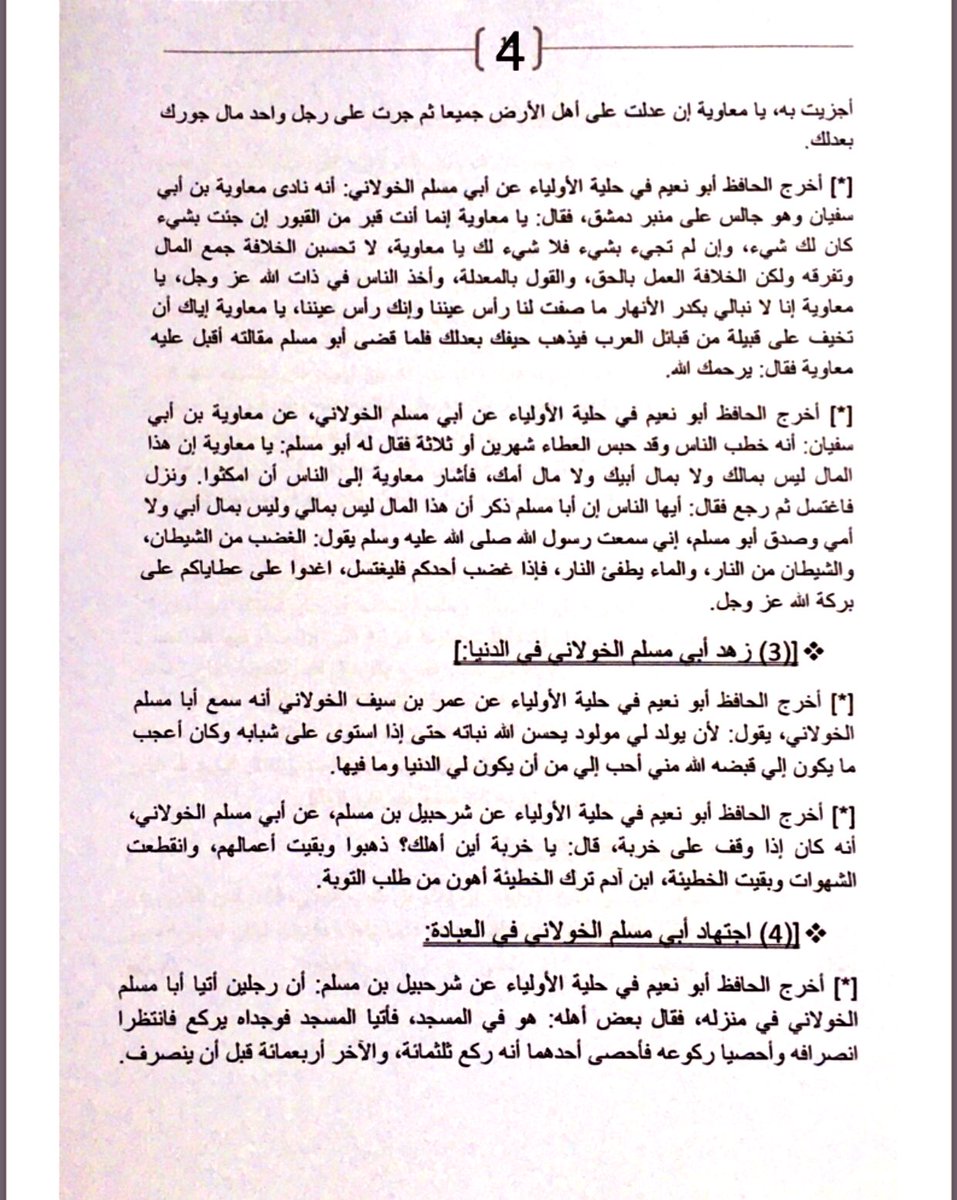 4
أجزيت به، يا معاوية إن عدلت على أهل الأرض جميعا ثم جرت على رجل واحد مال جورك
بعدلك.
[*] أخرج الحافظ أبو نعيم في حلية الأولياء عن أبي مسلم الخولاني: أنه نادى معاوية بن أبي
سفيان وهو جالس على منبر دمشق، فقال: يا معاوية إنما أنت قبر من القبور إن جئت بشيء
كان لك شيء، وإن لم تجيء بشيء فلا شيء لك يا معاوية، لا تحسبن الخلافة جمع المال
وتفرقه ولكن الخلافة العمل بالحق، والقول بالمعدلة، وأخذ الناس في ذات الله عز وجل، يا
معاوية إنا لا نبالي بكدر الأنهار ما صفت لنا رأس عيننا وإنك رأس عيننا، يا معاوية إياك أن
تخيف على قبيلة من قبائل العرب فيذهب حيفك بعدلك فلما قضى أبو مسلم مقالته أقبل عليه
معاوية فقال: يرحمك الله.
[*] أخرج الحافظ أبو نعيم في حلية الأولياء عن أبي مسلم الخولاني، عن معاوية بن أبي
سفيان: أنه خطب الناس وقد حبس العطاء شهرين أو ثلاثة فقال له أبو مسلم: يا معاوية إن هذا
المال ليس بمالك ولا بمال أبيك ولا مال أمك، فأشار معاوية إلى الناس أن امكثوا. ونزل
فاغتسل ثم رجع فقال: أيها الناس إن أبا مسلم ذكر أن هذا المال ليس بمالي وليس بمال أبي ولا
أمي وصدق أبو مسلم، إني سمعت رسول الله صلى الله عليه وسلم يقول: الغضب من الشيطان،
والشيطان من النار، والماء يطفئ النار، فإذا غضب أحدكم فليغتسل، اغدوا على عطاياكم على
بركة الله عز وجل.
❖ [(3) زهد أبي مسلم الخولاني في الدنيا:]
[*] أخرج الحافظ أبو نعيم في حلية الأولياء عن عمر بن سيف الخولاني أنه سمع أبا مسلم
الخولاني، يقول: لأن يولد لي مولود يحسن الله نباته حتى إذا استوى على شبابه وكان أعجب
ما يكون إلي قبضه الله مني أحب إلي من أن يكون لي الدنيا وما فيها.
[*] أخرج الحافظ أبو نعيم في حلية الأولياء عن شرحبيل بن مسلم، عن أبي مسلم الخولاني،
أنه كان إذا وقف على خربة، قال: يا خربة أين أهلك؟ ذهبوا وبقيت أعمالهم، وانقطعت
الشهوات وبقيت الخطيئة، ابن آدم ترك الخطيئة أهون من طلب التوبة.
❖ [(4) اجتهاد أبي مسلم الخولاني في العبادة:
[*] أخرج الحافظ أبو نعيم في حلية الأولياء عن شرحبيل بن مسلم: أن رجلين أتيا أبا مسلم
الخولاني في منزله، فقال بعض أهله: هو في المسجد، فأتيا المسجد فوجداه يركع فانتظرا
انصرافه وأحصيا ركوعه فأحصى أحدهما أنه ركع ثلثمائة، والآخر أربعمائة قبل أن ينصرف.